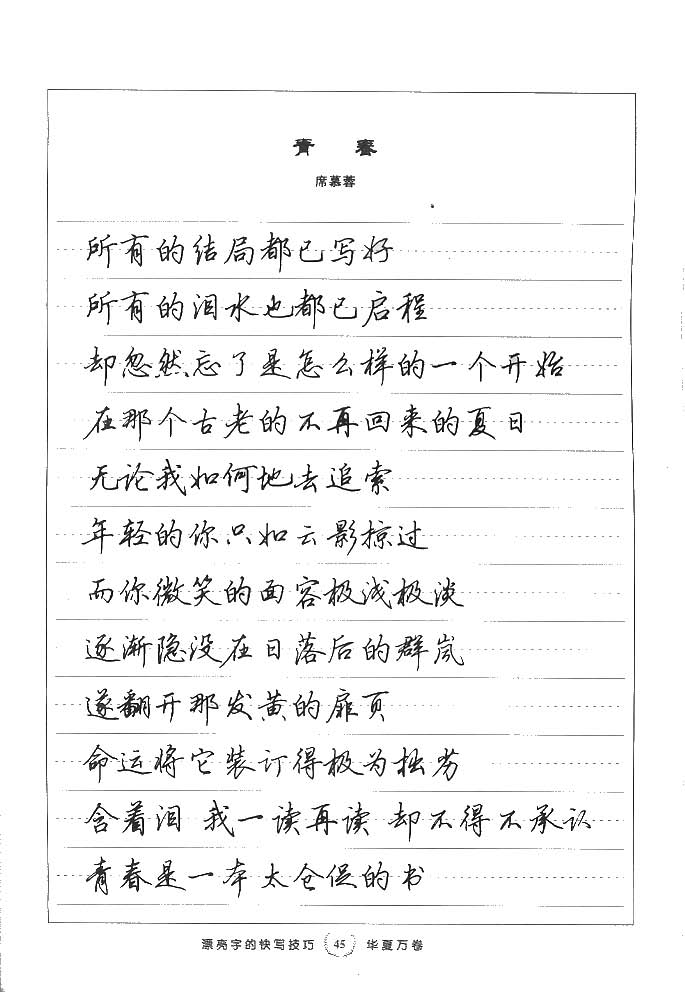 青 春
席慕蓉
所有的结局都已写好
所有的泪水也都已启程
却忽然忘了是怎么样的一个开始
在那个古老的不再回来的夏日
无论我如何地去追索
年轻的你只如云影掠过
而你微笑的面容极浅极淡
逐渐隐没在日落后的群岚
遂翻开那发黄的扉页
命运将它装订得极为拙劣
含着泪 我一读再读 却不得不承认
青春是一本太仓促的书
漂亮字的快写技巧 45 华夏万卷